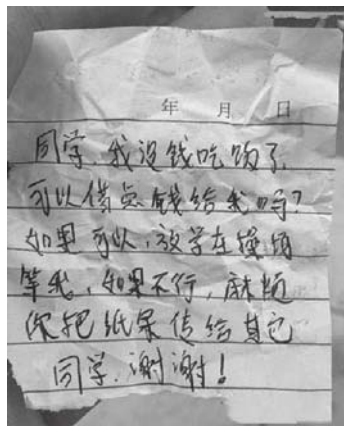 年 月 日
同学,我没钱吃饭了,
可以借点钱给我吗?
如果可以,放学在操场
等我,如果不行,麻烦
你把纸条传给其它
同学.谢谢!